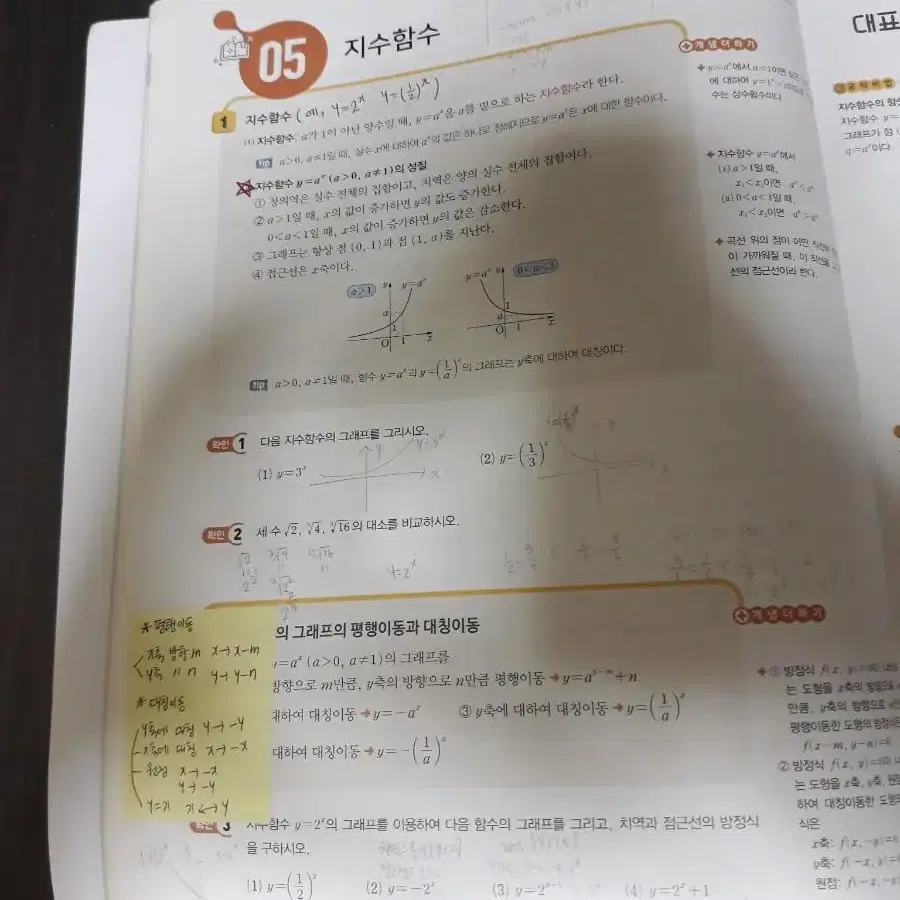 05 지수함수
1 지수함수 (예, y=2ˣ y=(1/2)ˣ)
(1) 지수함수: a가 1이 아닌 양수일 때, y=aˣ을 a를 밑으로 하는 지수함수라 한다.
tip a>0, a≠1일 때, 실수 x에 대하여 aˣ의 값은 하나로 정해지므로 y=aˣ은 x에 대한 함수이다.
지수함수 y=aˣ (a>0, a≠1)의 성질
① 정의역은 실수 전체의 집합이고, 치역은 양의 실수 전체의 집합이다.
② a>1일 때, x의 값이 증가하면 y의 값도 증가한다.
0<a<1일 때, x의 값이 증가하면 y의 값은 감소한다.
③ 그래프는 항상 점 (0, 1)과 점 (1, a)를 지난다.
④ 점근선은 x축이다.
a>1 y y=aˣ a 1 O 1 x
0<a<1 y=aˣ y 1 a O 1 x
tip a>0, a≠1일 때, 함수 y=aˣ과 y=(1/a)ˣ의 그래프는 y축에 대하여 대칭이다.
개념더하기
y=aˣ에서 a=1이면
에 대하여
수는 상수함수이다
지수함수 y=aˣ에서
(i) a>1일 때,
x₁<x₂이면
(ii) 0<a<1일 때,
x₁<x₂이면
곡선 위의 점이 어떤
이 가까워질 때, 이
선의 점근선이라 한다.
확인 1 다음 지수함수의 그래프를 그리시오.
(1) y=3ˣ y y=3ˣ x
(2) y=(1/3)ˣ
확인 2 세 수 √2, ³√4, ⁵√16의 대소를 비교하시오.
y=2ˣ
의 그래프의 평행이동과 대칭이동
y=aˣ (a>0, a≠1)의 그래프를
방향으로 m만큼, y축의 방향으로 n만큼 평행이동 → y=aˣ⁻ᵐ+n
대하여 대칭이동 → y=-aˣ ③ y축에 대하여 대칭이동 → y=(1/a)ˣ
대하여 대칭이동 → y=-(1/a)ˣ
* 평행이동
x축 방향 m x→x-m
y축 〃 n y→y-n
* 대칭이동
y축에 대칭 y→-y
x축에 대칭 x→-x
원점 x→-x
y→-y
y=x x↔y
개념더하기
① 방정식 f(x, y)=0이
는 도형을 x축의 방향으로
만큼, y축의 방향으로
평행이동한 도형의 방정식은
f(x-m, y-n)=0
② 방정식 f(x, y)=0이
는 도형을 x축, y축, 원점
하여 대칭이동한 도형의
식은
x축: f(x, -y)=0
y축: f(-x, y)=0
원점: f(-x, -y)
확인 3 지수함수 y=2ˣ의 그래프를 이용하여 다음 함수의 그래프를 그리고, 치역과 점근선의 방정식
을 구하시오.
(1) y=(1/2)ˣ (2) y=-2ˣ (3) y=2ˣ⁻¹ (4) y=2ˣ+1
대표
지수함수의
지수함수 y=
그래프가 점
이다.